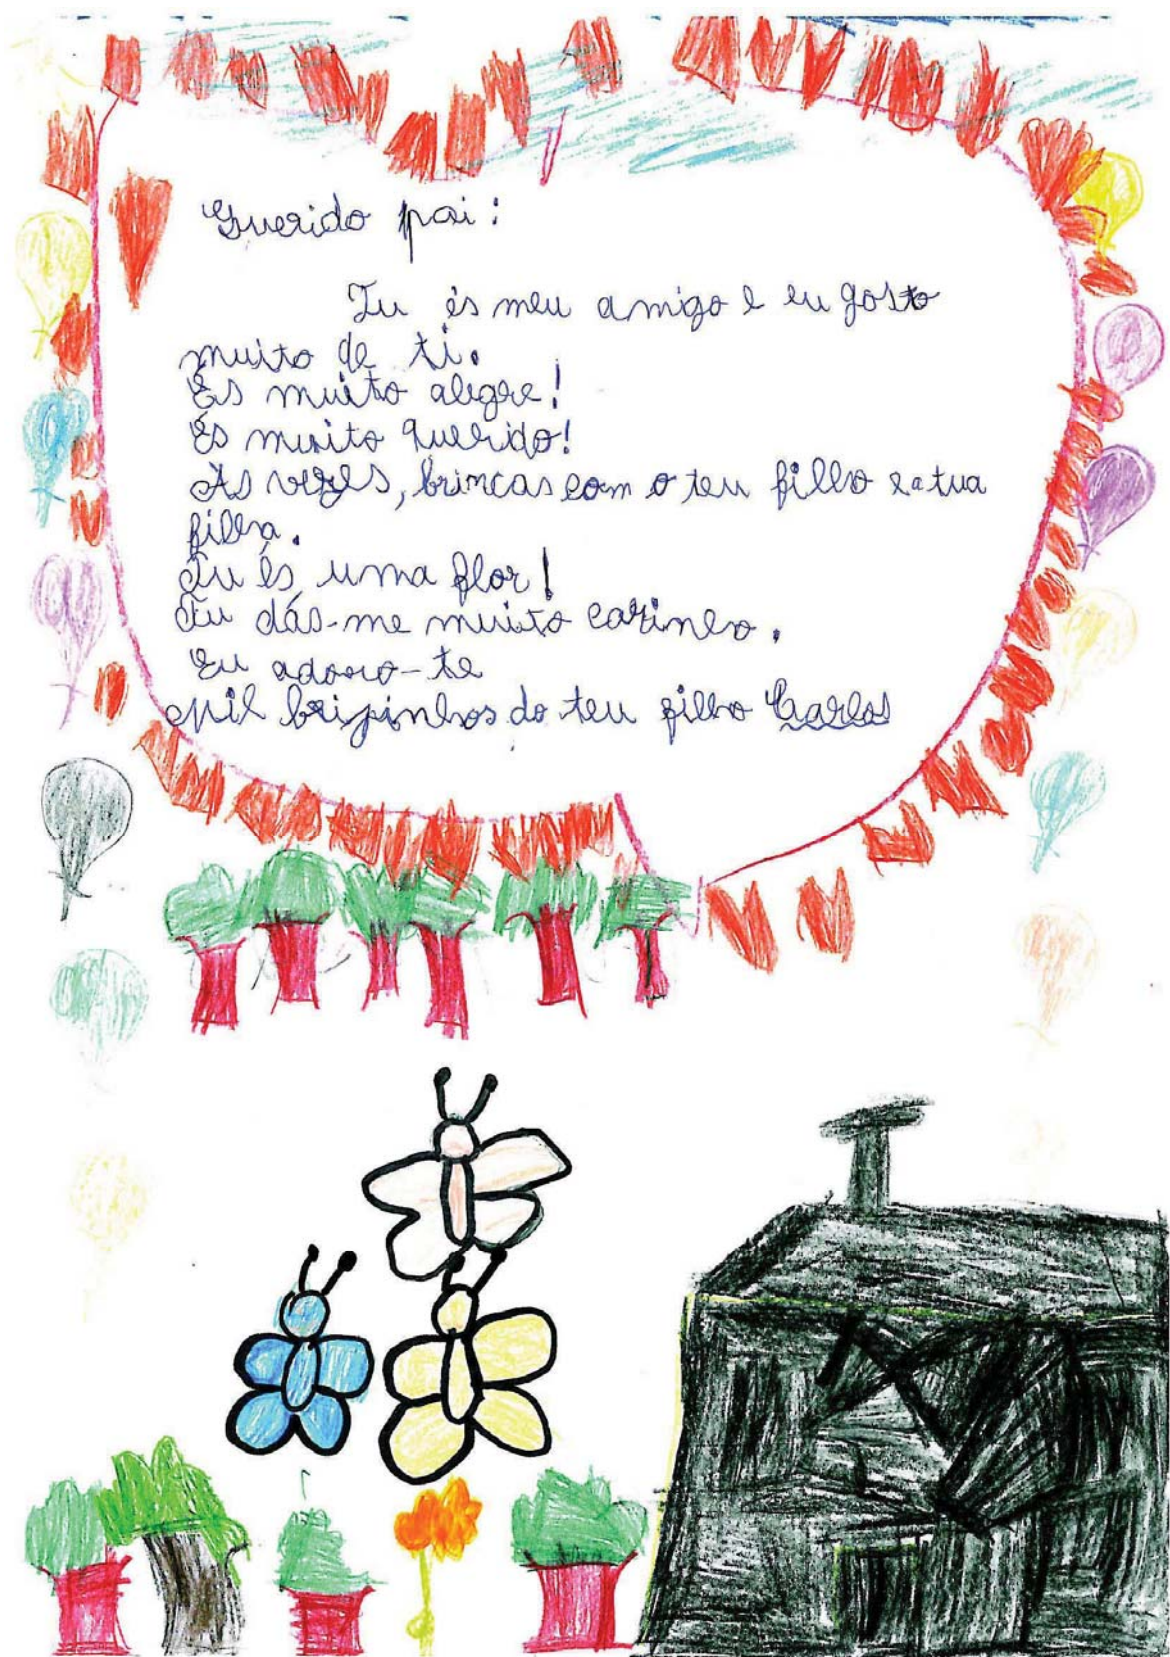 Querido pai:
Tu és meu amigo e eu gosto
muito de ti.
És muito alegre!
És muito querido!
Às vezes, brincas com o teu filho e a tua
filha.
Tu és uma flor!
Tu dás-me muito carinho.
Eu adoro-te
Mil beijinhos do teu filho Carlos